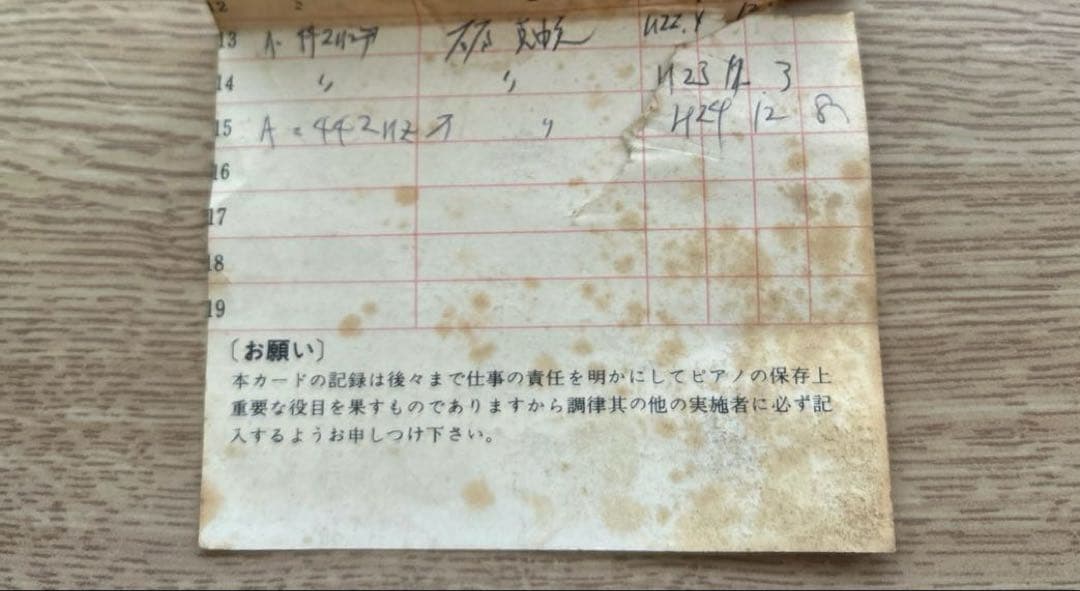 12
13 A= 442Hzヲ H22.4 12.
14 〃 〃 H23 12. 3
15 A = 442Hz ヲ 〃 H24 12 8
16
17
18
19
〔お願い〕
本カードの記録は後々まで仕事の責任を明かにしてピアノの保存上
重要な役目を果すものでありますから調律其の他の実施者に必ず記
入するようお申しつけ下さい。